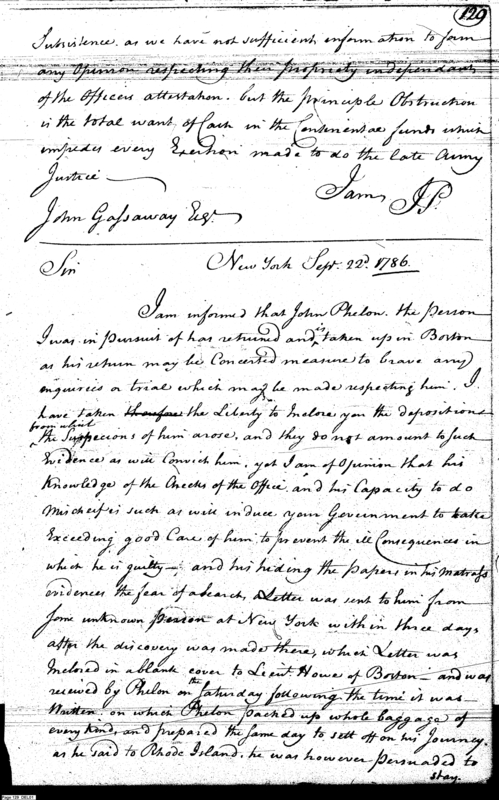 129
Subsistence. as we have not sufficient information to form
any Opinion respecting their propriety independant
of the Officers attestation. but the principle Obstruction
is the total want of Cash in the Continental funds which
impedes every Exertion made to do the late Army
Justice
I am JP.
John Gassaway Esqr.
Sir New York Sept. 22d. 1786.
I am informed that John Phelon. the person
I was in pursuit of has returned and is taken up in Boston
as his return may be Concerted measure to brave any
enquiries or trial which may be made respecting him. I.
have taken therefore the Liberty to Inclose you the depositions
from which
the Suspecions of him arose, and they do not amount to such
Evidence as will Convict him. yet I am of Opinion that his
Knowledge of the Checks of the Office. and his Capacity to do
Mischeif is such as will induce your Government to take
Exceeding good Care of him to prevent the ill Consequences in
which he is guilty— and his hiding the papers in his Matrass
evidences the fear of a search, a Letter was sent to him from
some unknown person at New York within three days
after the discovery was made there, which Letter was
Inclosed in a blank cover to Lieut. Howe of Boston— and was
recieved by Phelon on the Saturday following the time it was
Written. on which Phelon packed up whole baggage of
every kind, and prepared the same day to sett off on his Journey.
as he said to Rhode Island. he was however persuaded to
stay.
Page 129 (RG)